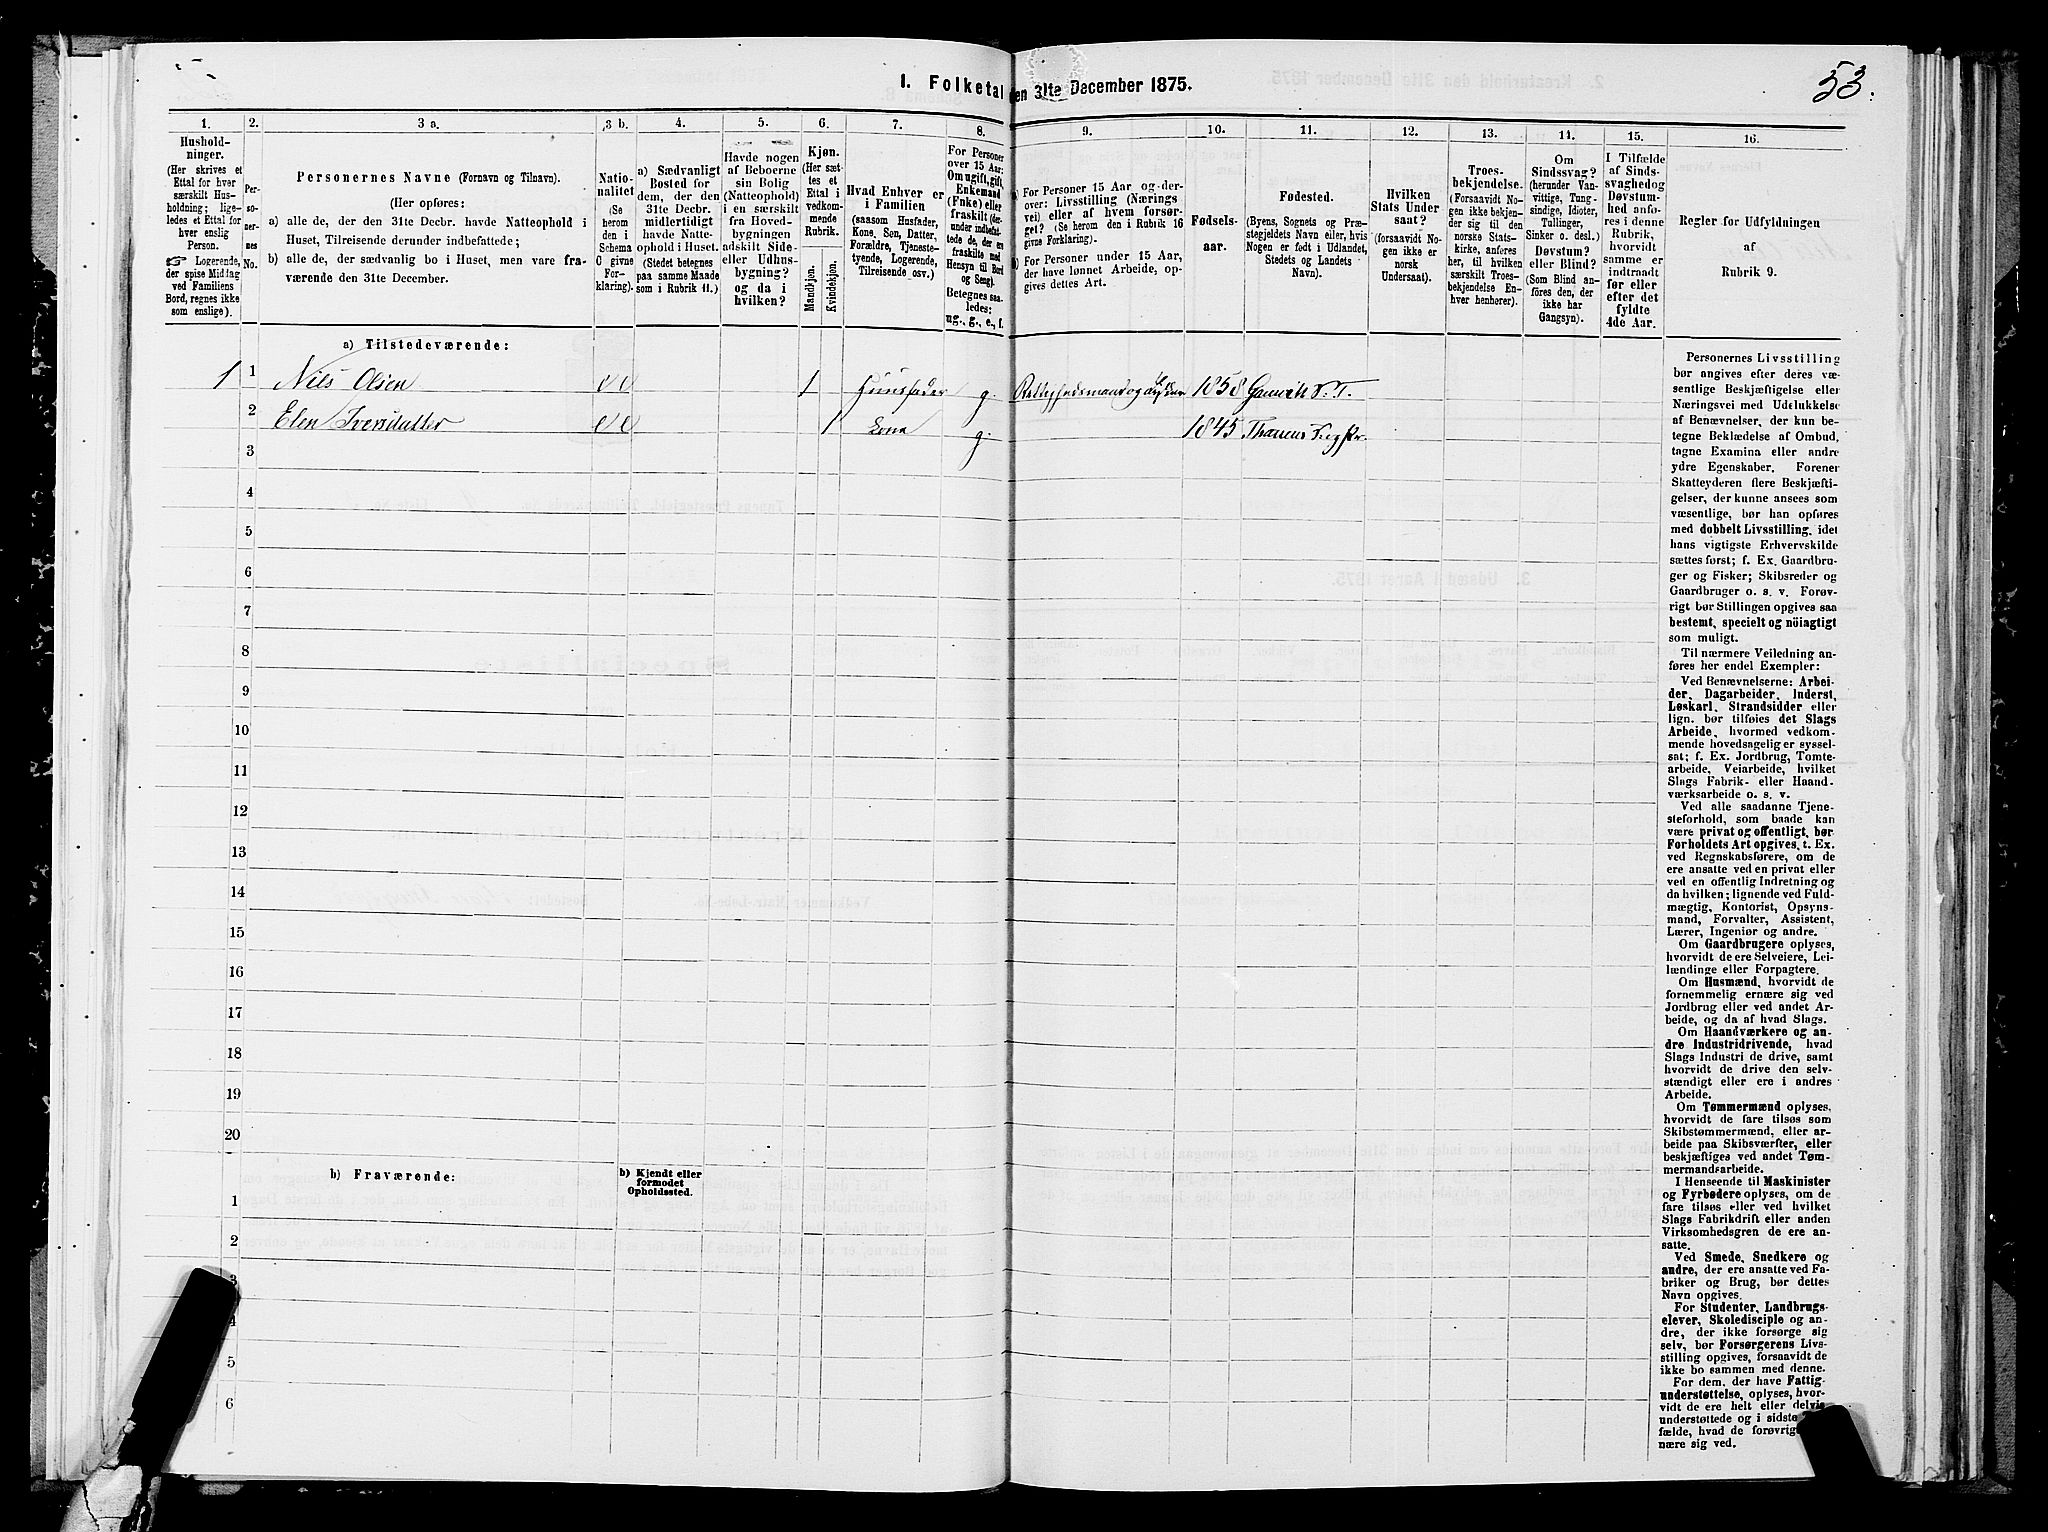 53.
1. Folketal den 31te December 1875.
1.
2.
3 a.
3 b.
4.
5.
6.
7.
8.
9.
10.
11.
12.
13.
14.
15.
16.
Hushold-
ninger.
(Her skrives et
Ettal for hver
særskilt Hus-
holdning; lige-
ledes et Ettal for
hver enslig
Person.
☞ Logerende,
der spise Middag
ved Familiens
Bord, regnes ikke
som enslige).
Per-
so-
ner-
nes
No.
Personernes Navne (Fornavn og Tilnavn).
(Her opføres:
a) alle de, der den 31te Decbr. havde Natteophold i
Huset, Tilreisende derunder indbefattede;
b) alle de, der sædvanlig bo i Huset, men vare fra-
værende den 31te December.
Natio-
nalitet
(Se
herom
den i
Schema
C givne
For-
klaring).
a) Sædvanligt
Bosted for
dem, der den
31te Decbr.
midlertidigt
havde Natte-
ophold i Huset.
(Stedet betegnes
paa samme Maade
som i Rubrik 11.)
Havde nogen
af Beboerne
sin Bolig
(Natteophold)
i en særskilt
fra Hoved-
bygningen
adskilt Side-
eller Udhus-
bygning?
og da i
hvilken?
Kjøn.
(Her sæt-
tes et
Ettal i
vedkom-
mende
Rubrik.
Mandkjøn.
Kvindekjøn.
Hvad Enhver er
i Familien
(saasom Husfader,
Kone, Søn, Datter,
Forældre, Tjeneste-
tyende, Logerende,
Tilreisende osv.)
For Personer
over 15 Aar:
Om ugift, gift,
Enkemand
(Enke) eller
fraskilt (der-
under indbefat-
tede de, der en
fraskilte med
Hensyn til Bord
og Seng).
Betegnes saa-
ledes:
ug., g., e., f.
a) For Personer 15 Aar og der-
over: Livsstilling (Nærings
vei) eller af hvem forsør-
get? (Se herom den i Rubrik 16
givne Forklaring).
b) For Personer under 15 Aar,
der have lønnet Arbeide, op-
gives dettes Art.
Fødsels-
aar.
Fødested.
(Byens, Sognets og Præ-
stegjeldets Navn eller, hvis
Nogen er født i Udlandet,
Stedets og Landets
Navn).
Hvilken
Stats Under
saat?
(forsaavidt No-
gen ikke er
norsk
Undersaat).
Troes-
bekjendelse.
(Forsaavidt No-
gen ikke bekjen-
der sig til den
norske Stats-
kirke, anføres
her, til hvilken
særskilt Troes-
bekjendelse En-
hver henhører).
Om
Sindssvag?
(herunder Van-
vittige, Tung-
sindige, Idioter,
Tullinger,
Sinker o. desl.)
Døvstum?
eller Blind?
(Som Blind an-
føres den, der
ikke har
Gangsyn).
I Tilfælde
af Sinds-
svaghed og
Døvstum-
hed anfø-
res i denne
Rubrik,
hvorvidt
samme er
indtraadt
før eller
efter det
fyldte
4de Aar.
Regler for Udfyldningen
af
Rubrik 9.
a) Tilstedeværende:
1 1 Nils Olsen 1 Huusfader g. 1858
2 Elen Iversdatter 1 kona g. 1845
3
4
5
6
7
8
9
10
11
12
13
14
15
16
17
18
19
20
b) Fraværende:
b) Kjendt eller
formodet
Opholdssted.
1
2
3
4
5
6
Personernes Livsstilling
bør angives efter deres væ-
sentlige Beskjæftigelse eller
Næringsvei med Udelukkelse
af Benævnelser, der kun be-
tegne Beklædelse af Ombud,
tagne Examina eller andre
ydre Egenskaber. Forener
Skatteyderen flere Beskjæfti-
gelser, der kunne ansees som
væsentlige, bør han opføres
med dobbelt Livsstilling, idet
hans vigtigste Erhvervskilde
sættes først; f. Ex. Gaardbru-
ger og Fisker; Skibsreder og
Gaardbruger o. s. v. Forøv-
rigt bør Stillingen opgives saa
bestemt, specielt og nöiagtigt
som muligt.
Til nærmere Veiledning an-
føres her endel Exempler:
Ved Benævnelserne: Arbei-
der, Dagarbeider, Inderst,
Løskarl, Strandsidder eller
lign. bør tilføies det Slags
Arbeide, hvormed vedkom-
mende hovedsagelig er syssel-
sat; f. Ex. Jordbrug, Tomte-
arbeide, Veiarbeide, hvilket
Slags Fabrik- eller Haand-
værksarbeide o. s. v.
Ved alle saadanne Tjene-
steforhold, som baade kan
være privat og offentligt, bør
Forholdets Art opgives, f. Ex.
ved Regnskabsførere, om de
ere ansatte ved en privat eller
ved en offentlig Indretning og
da hvilken; lignende ved Fuld-
mægtig, Kontorist, Opsyns-
mand, Forvalter, Assistent,
Lærer, Ingeniør og andre.
Om Gaardbrugere oplyses,
hvorvidt de ere Selveiere, Lei-
lændinge eller Forpagtere.
Om Husmænd, hvorvidt de
fornemmelig ernære sig ved
Jordbrug eller ved andet Ar-
beide, og da af hvad Slags.
Om Haandværkere og an-
dre Industridrivende, hvad
Slags Industri de drive, samt
hvorvidt de drive den selv-
stændigt eller ere i andres
Arbeide.
Om Tømmermænd oplyses,
hvorvidt de fare tilsøs som
Skibstømmermænd, eller ar-
beide paa Skibsværfter, eller
beskjæftiges ved andet Tøm-
mermandsarbeide.
I Henseende til Maskinister
og Fyrbødere oplyses, om de
fare tilsøs eller ved hvilket
Slags Fabrikdrift eller anden
Virksomhedsgren de ere an-
satte.
Ved Smede, Snedkere og
andre, der ere ansatte ved Fa-
briker og Brug, bør dettes
Navn opgives.
For Studenter, Landbrugs-
elever, Skoledisciple og an-
dre, der ikke forsørge sig
selv, bør Forsørgerens Livs-
stilling opgives, forsaavidt de
ikke bo sammen med denne.
For dem, der have Fattig-
understøttelse, oplyses, hvor-
vidt de ere helt eller delvis
understøttede og i sidste
fælde, hvad de forøvrigt
nære sig ved.